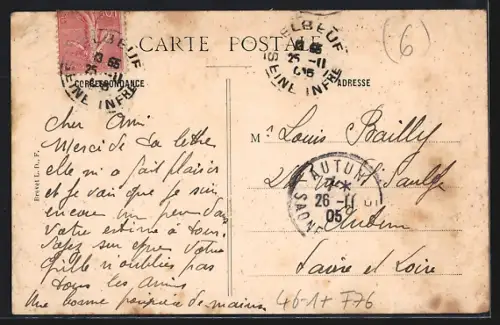 CARTE POSTALE
CORRESPONDANCE
ADRESSE
ELBEUF
25 -11
05
SEINE INFRE
ELBEUF
25 -11
05
SEINE INFRE
(6)
Cher Ami
Merci de ta lettre
elle m'a fait plaisir
et je vois que je suis
encore un peu dans
votre estime à tous.
Soyez sur que votre
n'oublies pas
tous les amis
Une bonne poignée de mains
Brevet L. D., F.
Mr Louis Bailly
Autun
Saône et Loire
AUTUN
26 -11
05
SAONE
46-1+ F76